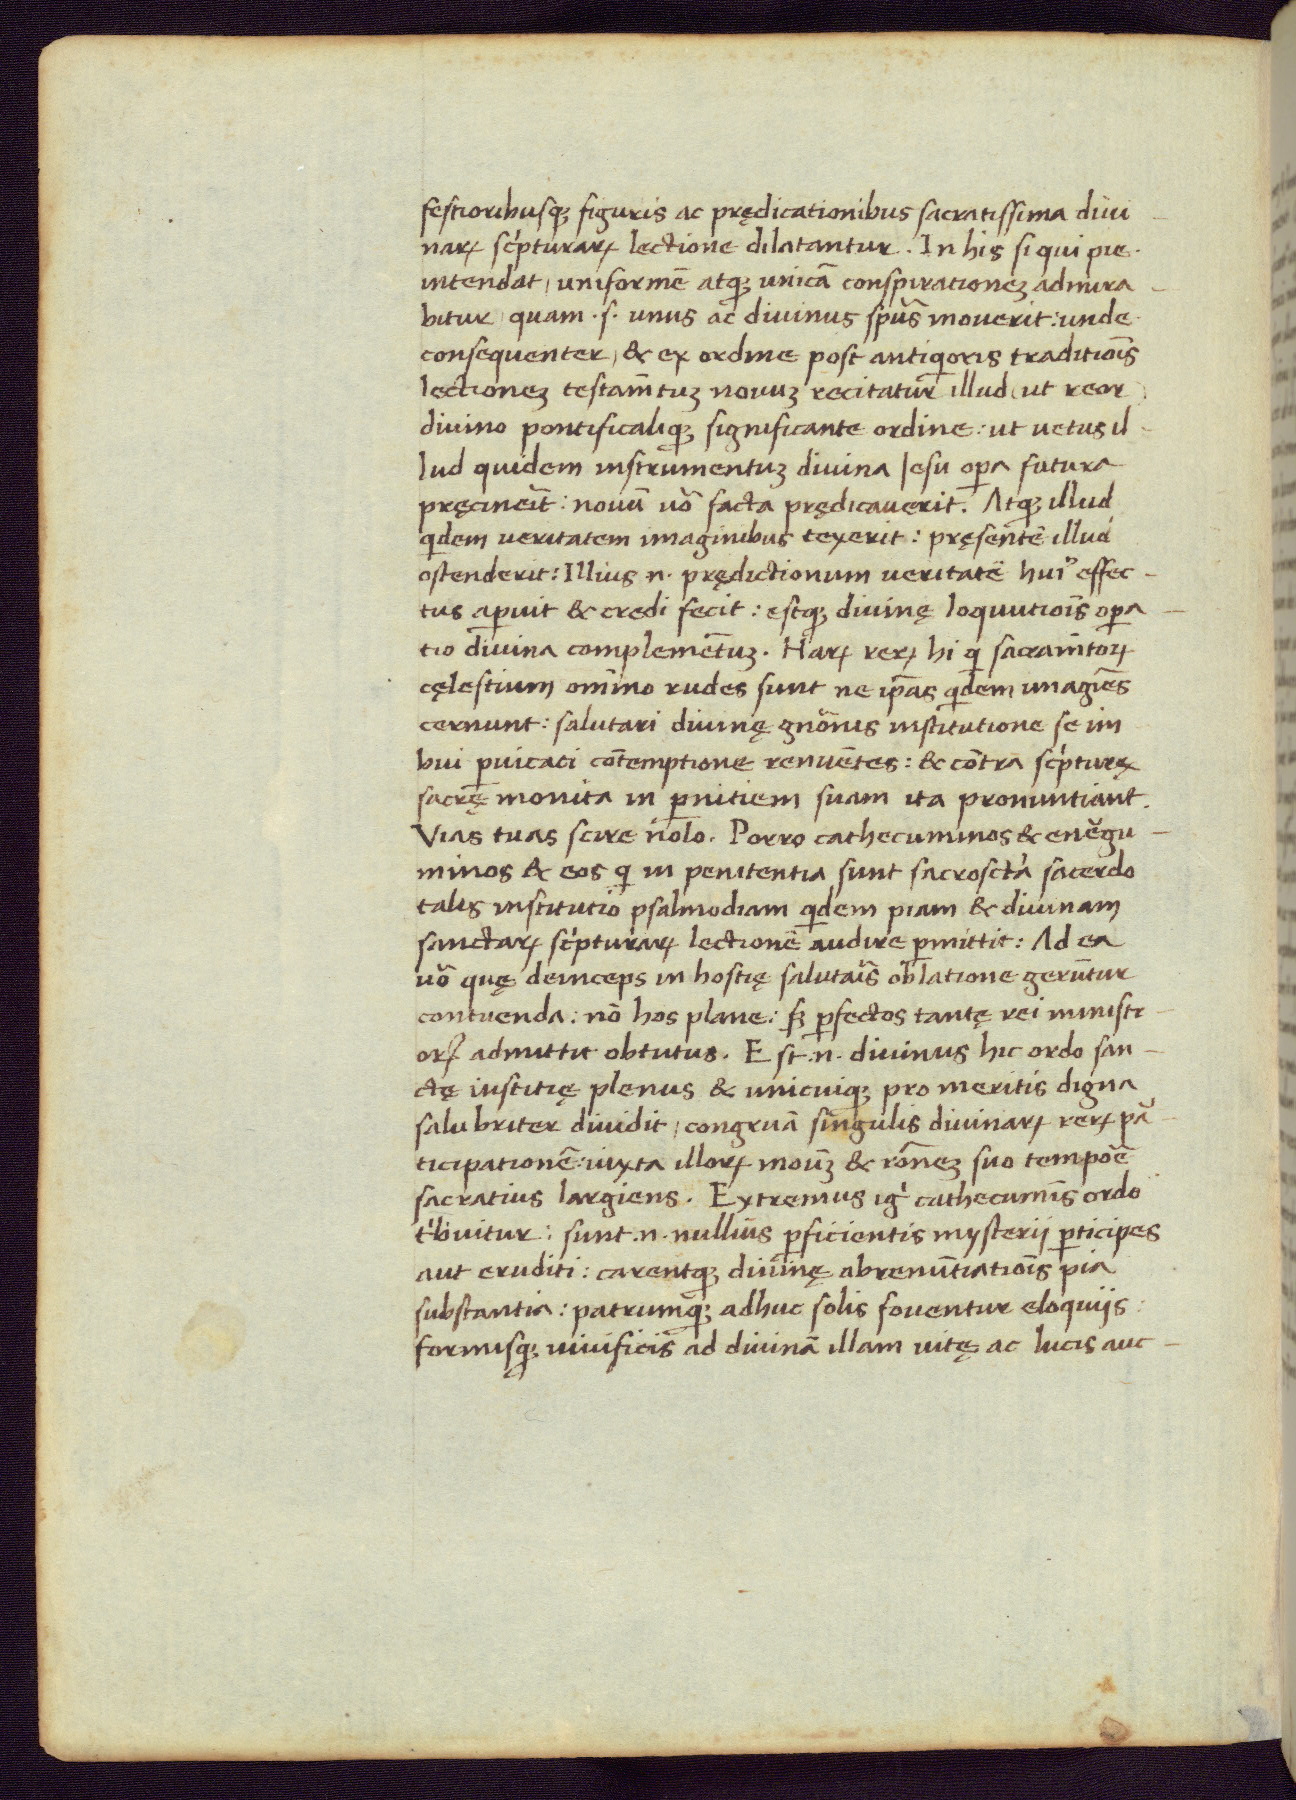 festioribusq; figuris ac prędicationibus sacratissima diui-
narꝝ sc͛pturarꝝ lectione dilatantur. In his si qui pie
intendat, uniformē atq; unicā conspirationeꝫ admira-
bitur, quam .s. unus ac diuinus sp̄us mouerit: unde
consequenter, & ex ordine post antiq̄oris traditiōis
lectioneꝫ testam̄tuꝫ nouuꝫ recitatur̄ illud, ut reor,
diuino pontificaliq; significante ordine: ut uetus il-
lud quidem instrumentuꝫ diuina Iesu oꝑa futura
pręcinēit: nouū uō facta prędicauerit. Atq; illud
q̄dem ueritatem imaginibus texerit: pręsentē illud
ostenderit: Illius .n. prędictionum ueritatē huiꝰ effec-
tus aꝑuit & credi fecit: estq; diuinę loquutiōis oꝑa-
tio diuina complemētuꝫ. Harꝝ rerꝝ hi q̄ sacram̄torꝝ
cęlestium om̄ino rudes sunt ne ip̄as q̄dem imagiēs
cernunt: salutari diuinę gnōnis institutione se im
bui ꝑuicaci cōtemptione renuētes: & cōtra sc͛pturę
sacrę monita in ꝑnitiem suam ita pronuntiant.
Vias tuas scire nolo. Porro cathecuminos & enĕgu-
minos & eos q̄ in penitentia sunt sacroscta sacerdo
talis institutio psalmodiam q̄dem piam & diuinam
sanctarꝝ sc͛pturarꝝ lectionē audire ꝑmittit: Ad ea
uō quę deinceps in hostię salutāis oblatione gerūtur
contuenda: nō hos plane: sꝫ ꝑfectos tantę rei ministr-
orꝝ admittit obtutus. Est .n. diuinus hic ordo san-
ctę iustitię plenus & unicuiq; pro meritis digna
salubriter diuidit, congruā singulis diuinarꝝ rerꝝ pā-
ticipationē: iuxta illorꝝ moūꝫ & rōneꝫ suo tempoē
sacratius largiens. Extremus ig͛ cathecumīs ordo
t͛buitur: sunt .n. nullius ꝑficientis mysterij ꝑticipes
aut eruditi: carentq; diuinę abrenūtiatiōis pia
substantia: patrumq; adhuc solis fouentur eloquijs:
formisq; uiuificis ad diuinā illam uitę ac lucis auc-